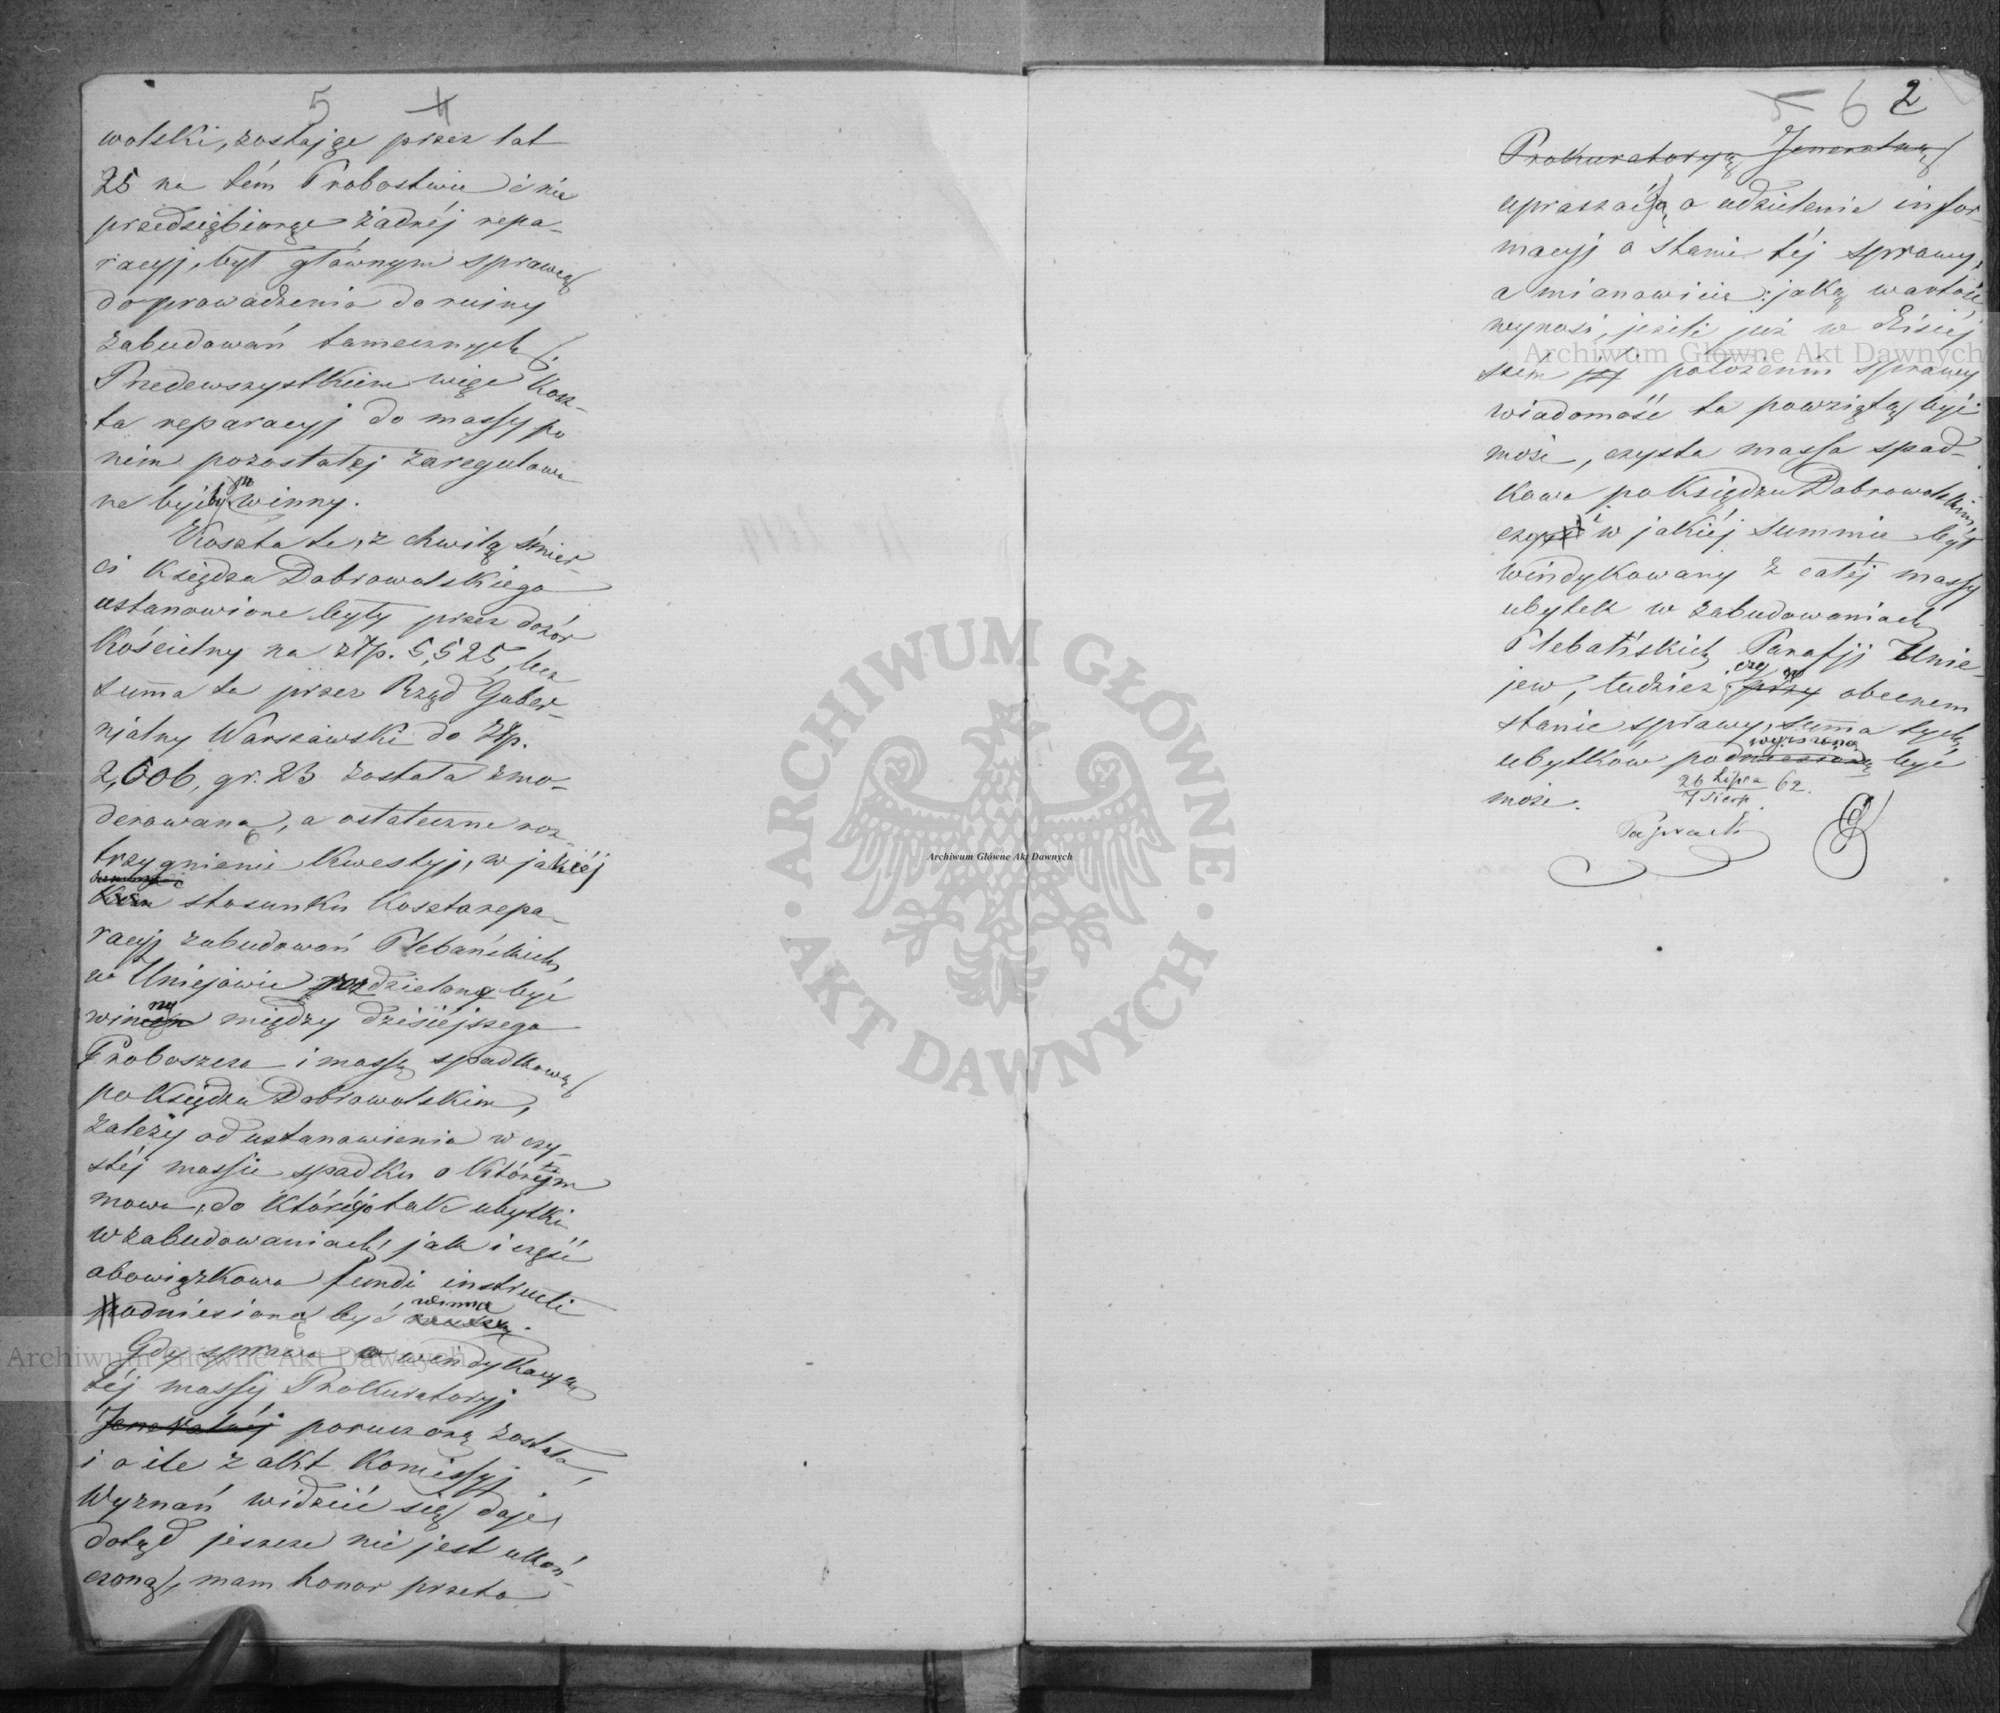 5
wolski, zostając przez lat
25 na tém Probostwie i nie
przedsiębiorąc żadnéj repa-
racyj, był głównym sprawcą
doprowadzenia do ruiny
zabudowań tamecznych.
Przedewszystkiem więc kosz-
ta reparacyj do massy po
nim pozostałej zaregulowa
ne być by po winny.
Koszta te, z chwilą śmier-
ci Księdza Dobrowolskiego
ustanowione były przez dozór
Kościelny na złp. 5,525, lecz
summa ta przez Rząd Guber-
njalny Warszawski do złp.
2,606, gr. 23 została zmo-
derowaną, a ostateczne roz-
trzygnienie kwestyj, w jakiéj
stosunku koszta repa-
racyj zabudowań Plebańskich
w Uniejowie rozdzielone być
winny między dzisiejszego
Proboszcza i massę spadkową
po Księdzu Dobrowolskim,
zależy od ustanowienia w czy-
stéj massie spadku o którym
mowa, do któréj tak ubytki
w zabudowaniach, jak i część
obowiązkowa fundi instructi
odniesioną być winna.
Gdy sprawa windykacyi
téj massy Prokuratoryj
Jeneralnéj poruczoną została,
i o ile z akt Komissyj
Wyznań widzieć się daje,
dotąd jeszcze nie jest ukoń-
czoną, mam honor przeto
5 6 2
Prokuratoryą Jeneralną
upraszać ją o udzielenie infor-
macyj o stanie téj sprawy,
a mianowicie: jaką wartość
wynosi, jeżeli już w dzisiej
szem położeniu sprawy
wiadomość ta powziętą być
może, czysta massa spad-
kowa po Księdzu Dobrowolskim,
czy i w jakiéj summie był
windykowany z całéj massy
ubytek w zabudowaniach
Plebańskich Parafji Unie-
jew, tudzież czy w obecnem
stanie sprawy, summa tych
ubytków podwyższoną być
może.
26 Lipca
7 Sierp. 62.